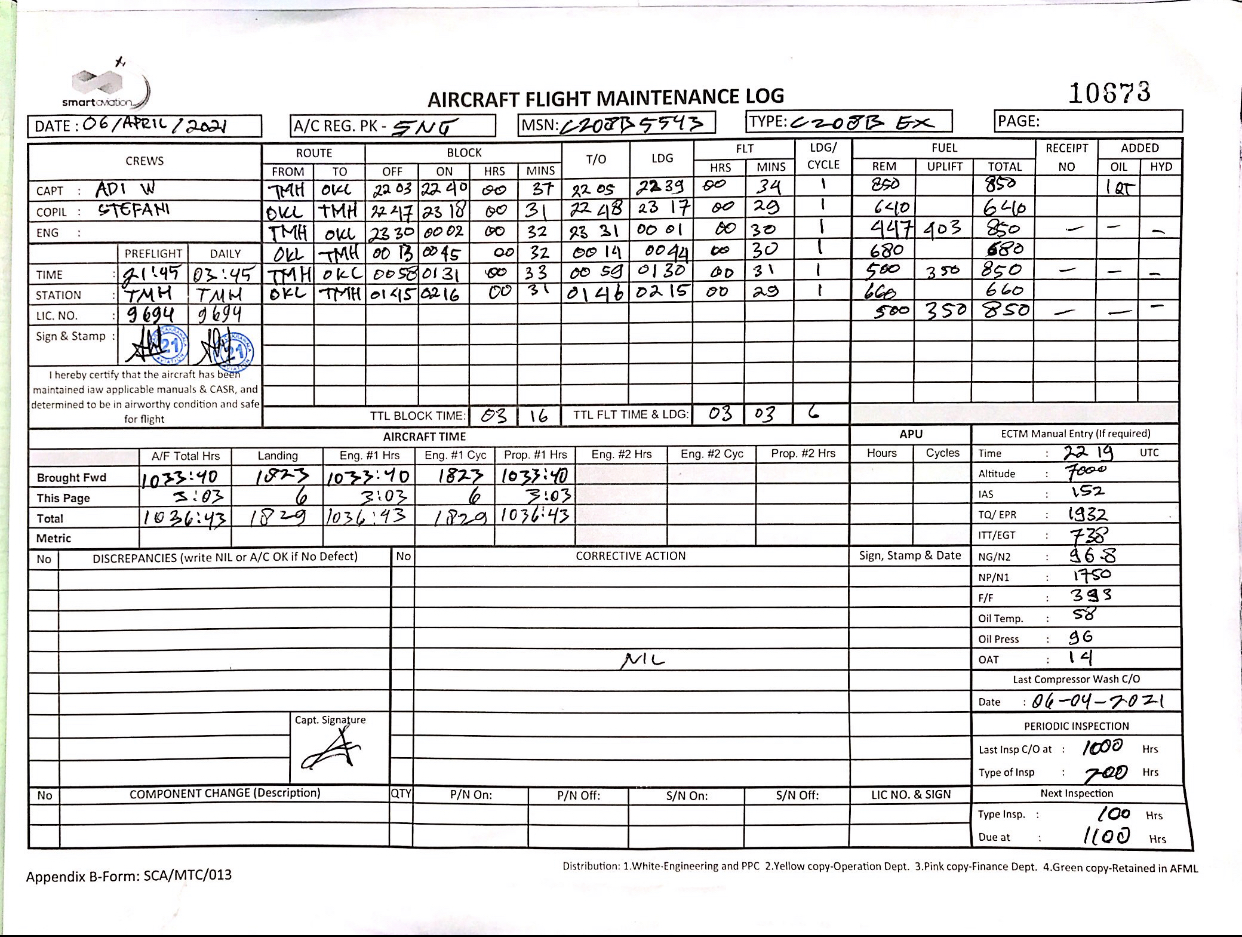 smartaviation
AIRCRAFT FLIGHT MAINTENANCE LOG
10673
DATE : 06/APRIL/2021 A/C REG. PK - SNG MSN: C208B5543 TYPE: C208B EX PAGE:
CREWS ROUTE BLOCK T/O LDG FLT LDG/ CYCLE FUEL RECEIPT NO ADDED
FROM TO OFF ON HRS MINS HRS MINS REM UPLIFT TOTAL OIL HYD
CAPT : ADI W TMH OKL 22 03 22 40 00 37 22 05 22 39 00 34 1 850 850 1 QT
COPIL : STEFANI OKL TMH 22 47 23 18 00 31 22 48 23 17 00 29 1 640 640
ENG : TMH OKL 23 30 00 02 00 32 23 31 00 01 00 30 1 447 403 850 — — —
PREFLIGHT DAILY OKL TMH 00 13 00 45 00 32 00 14 00 44 00 30 1 680 680
TIME : 21:45 03:45 TMH OKL 00 58 01 31 00 33 00 59 01 30 00 31 1 500 350 850 — — —
STATION : TMH TMH OKL TMH 01 45 02 16 00 31 01 46 02 15 00 29 1 660 660
LIC. NO. : 9694 9694 500 350 850 — — —
Sign & Stamp : 21 21
I hereby certify that the aircraft has been
maintained iaw applicable manuals & CASR, and
determined to be in airworthy condition and safe
for flight
TTL BLOCK TIME: 03 16 TTL FLT TIME & LDG: 03 03 6
AIRCRAFT TIME APU ECTM Manual Entry (If required)
A/F Total Hrs Landing Eng. #1 Hrs Eng. #1 Cyc Prop. #1 Hrs Eng. #2 Hrs Eng. #2 Cyc Prop. #2 Hrs Hours Cycles Time : 22 19 UTC
Brought Fwd 1033:40 1823 1033:40 1823 1033:40 Altitude : 7000
This Page 3:03 6 3:03 6 3:03 IAS : 152
Total 1036:43 1829 1036:43 1829 1036:43 TQ/ EPR : 1932
Metric ITT/EGT : 738
No DISCREPANCIES (write NIL or A/C OK if No Defect) No CORRECTIVE ACTION Sign, Stamp & Date NG/N2 : 96.8
NP/N1 : 1750
F/F : 393
Oil Temp. : 58
Oil Press : 96
NIL OAT : 14
Last Compressor Wash C/O
Date : 06-04-2021
Capt. Signature PERIODIC INSPECTION
Last Insp C/O at : 1000 Hrs
Type of Insp : 200 Hrs
No COMPONENT CHANGE (Description) QTY P/N On: P/N Off: S/N On: S/N Off: LIC NO. & SIGN Next Inspection
Type Insp. : 100 Hrs
Due at : 1100 Hrs
Distribution: 1.White-Engineering and PPC 2.Yellow copy-Operation Dept. 3.Pink copy-Finance Dept. 4.Green copy-Retained in AFML
Appendix B-Form: SCA/MTC/013